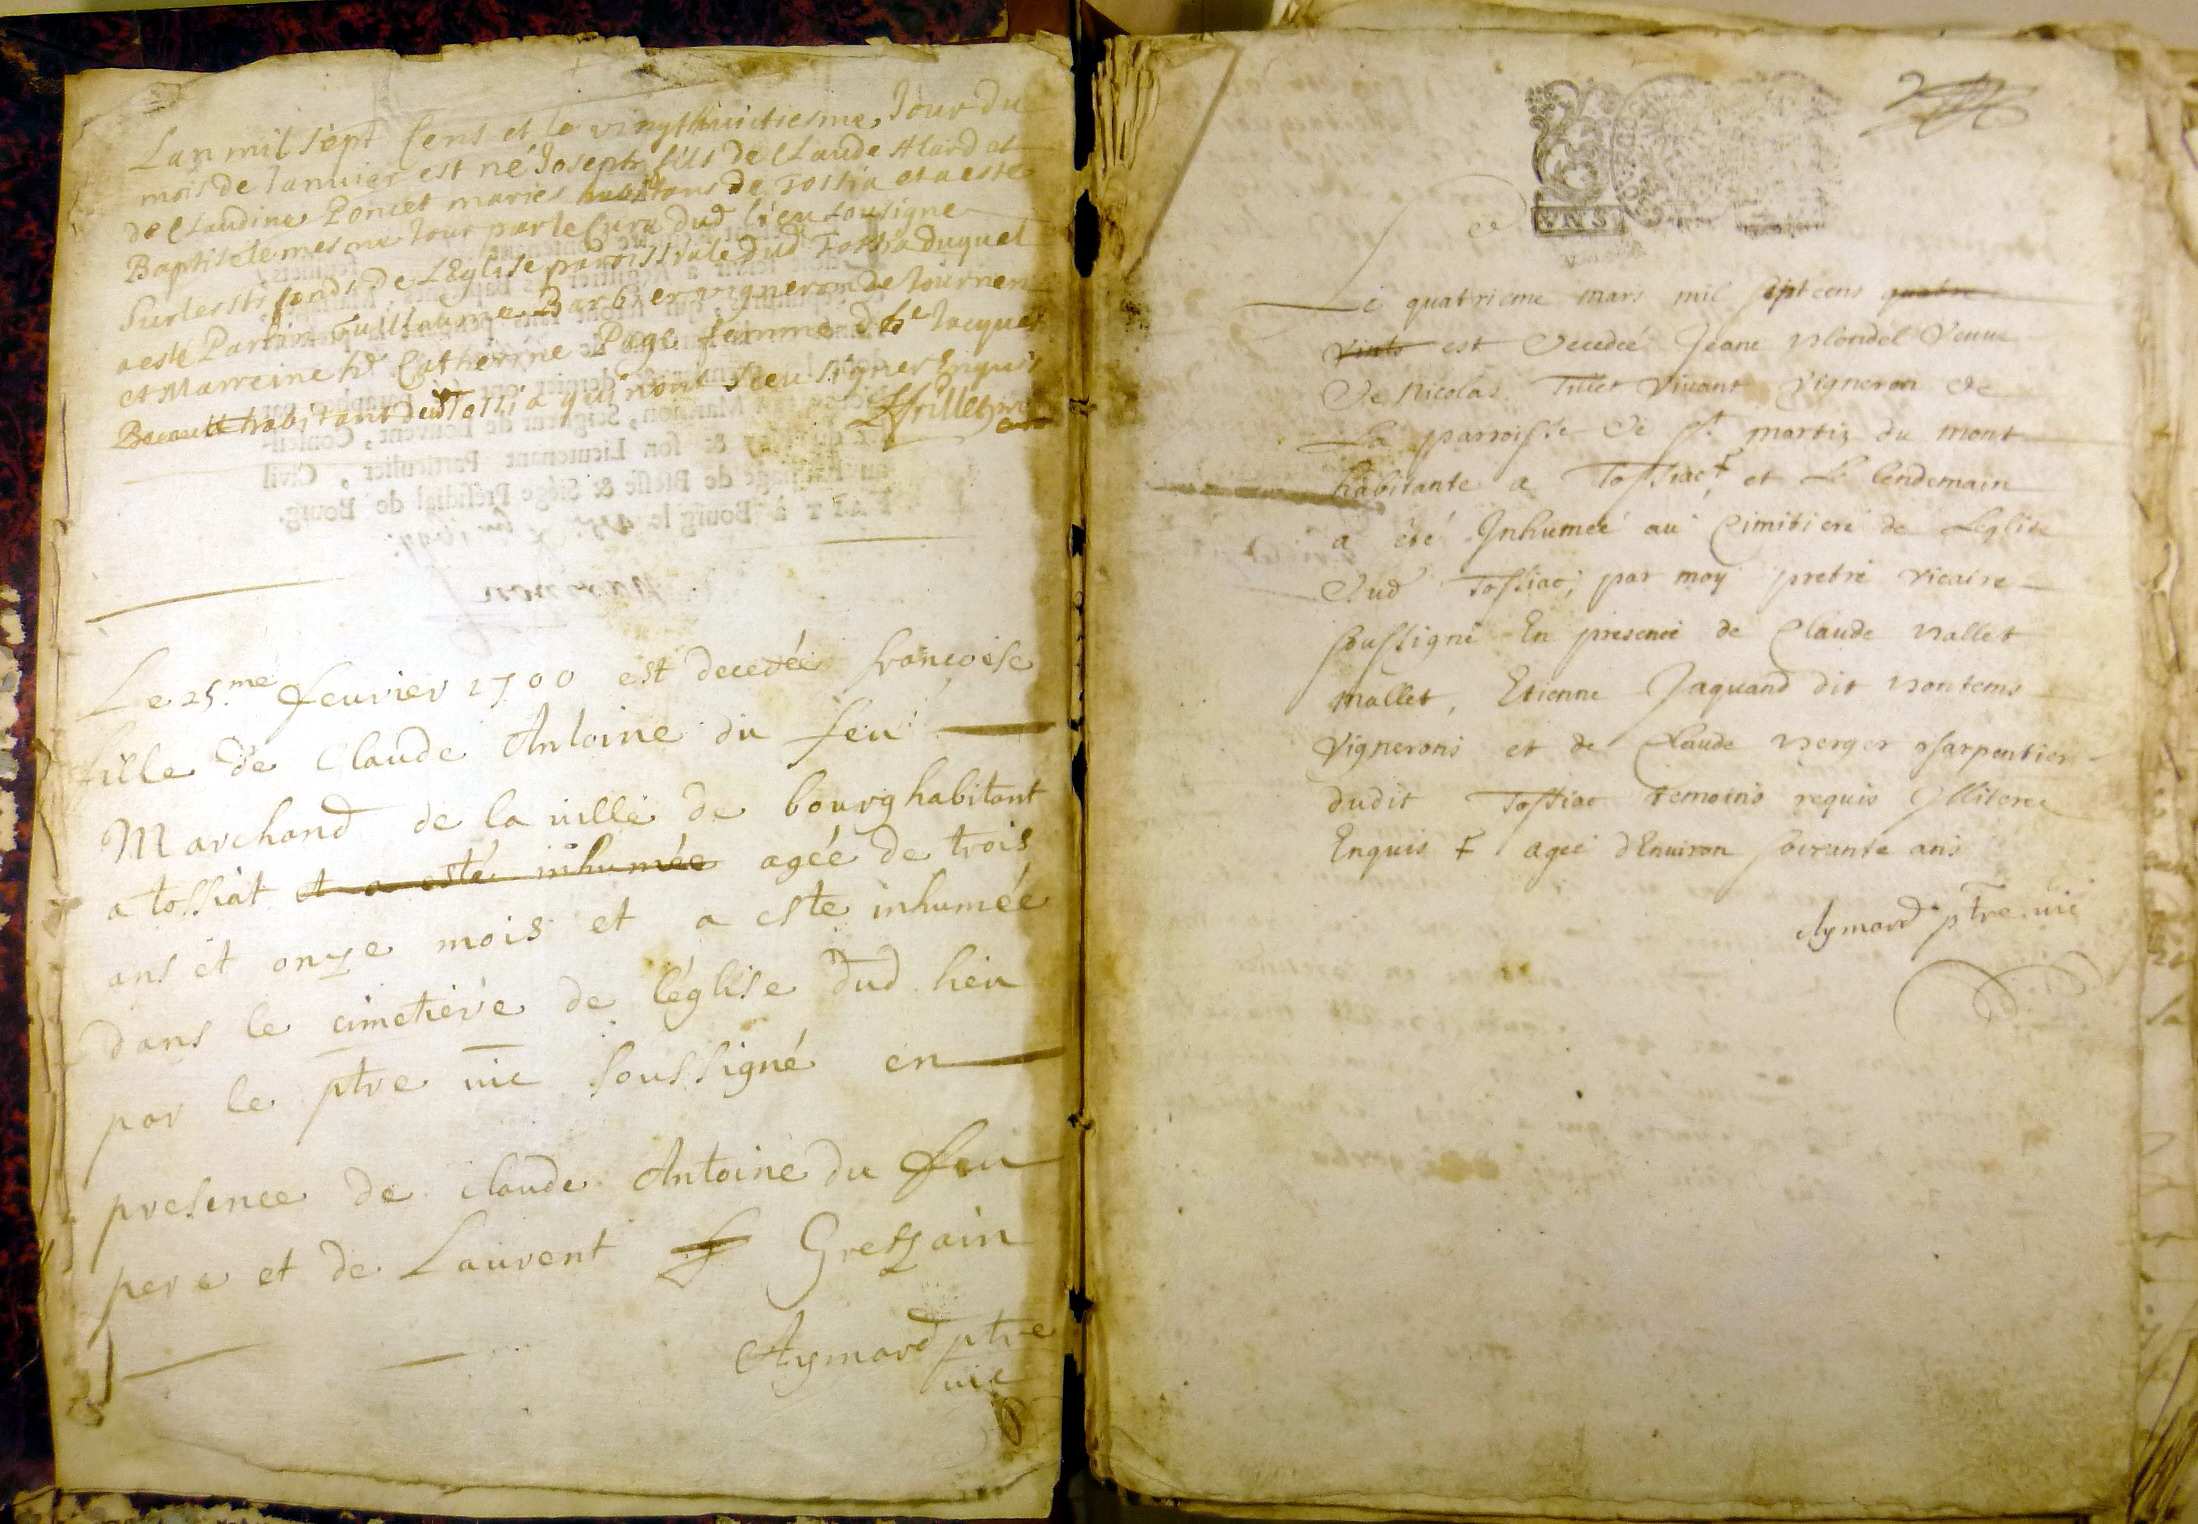 Lan mil sept Cens et le vingthuictiesme Jour du
mois de Janvier est né Joseph fils de Claude Alard et
de Claudine Poncet mariés habitans de Tossia et a esté
Baptisé le mesme Jour par le Curé dud lieu sousigné
Sur les sts fonds de L'Eglise parroissiale dud Tossia duquel
a esté Parrin Guillaume Barbier vigneron de Journen
et Marreine hē Catherine Page femme d'hē Jacques
habitant dud Tossia qui n'ont sceu signer Enquis
Frillet
au Bailliage de Bresse & Siége Présidial de Bourg.
FAIT à Bourg le
Le 25.me feurier 1700 est decedée francoise
fille de Claude Antoine du feu
Marchand de la uille de bourg habitant
a tossiat et a esté inhumée agée de trois
ans et onze mois et a este inhumée
dans le cimetiére de léglise dud lieu
par le ptre uic soussigné en
presence de claude Antoine du feu
pere et de Laurent Gretzain
Aymard ptre
uic
VNS
Le quatrieme mars mil sept cens quatre
vints est decedeé Jeane Blondel veuue
de Nicolas Tillet viuant vigneron de
La parroisse de st. martin du mont
habitante a Tossiac ⨍ et Le lendemain
a été Inhumeé au Cimitiere de Leglise
dud Tossiac, par moy pretre vicaire
soussigné En presence de Claude Vallet
mallet, Etienne Jaquand dit Bontems
vignerons et de Claude Verger charpentier
dudit Tossiac temoins requis Illiterés
Enquis ⨍ agée dEnuiron soixante ans
Aymard ptre uic